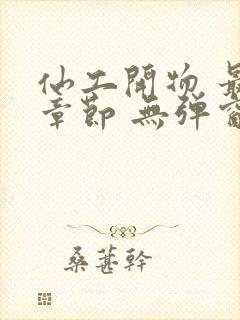 仙工開物 最
章節 無彈窗
桑葚幹